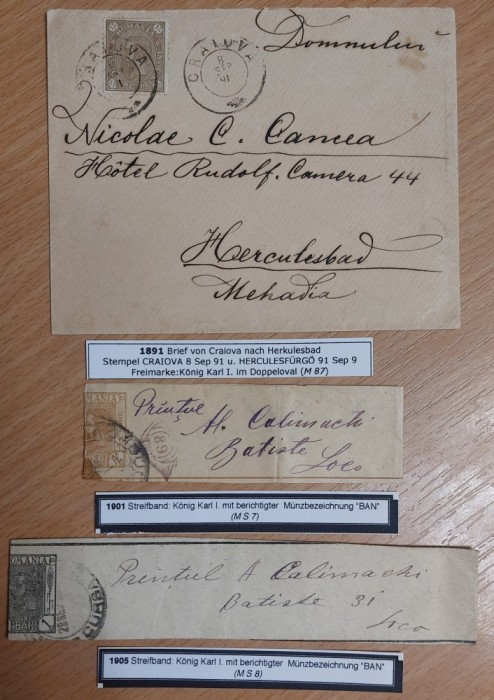 ROMANIA
CRAIOVA
CRAIOVA
8
SEP
91
Domnului
Nicolae C. Cancea
Hôtel Rudolf. Camera 44
Herculesbad
Mehadia
1891 Brief von Craiova nach Herkulesbad
Stempel CRAIOVA 8 Sep 91 u. HERCULESFÜRGÖ 91 Sep 9
Freimarke:König Karl I. im Doppeloval (M 87)
ROMANIA
Prințul
Al. Calimachi
Batiste
Loco
1901 Streifband: König Karl I. mit berichtigter Münzbezeichnung "BAN"
(M S 7)
ROMANIA
BANI
Prințul A Calimachi
Batiste 31
Loco
1905 Streifband: König Karl I. mit berichtigter Münzbezeichnung "BAN"
(M S 8)